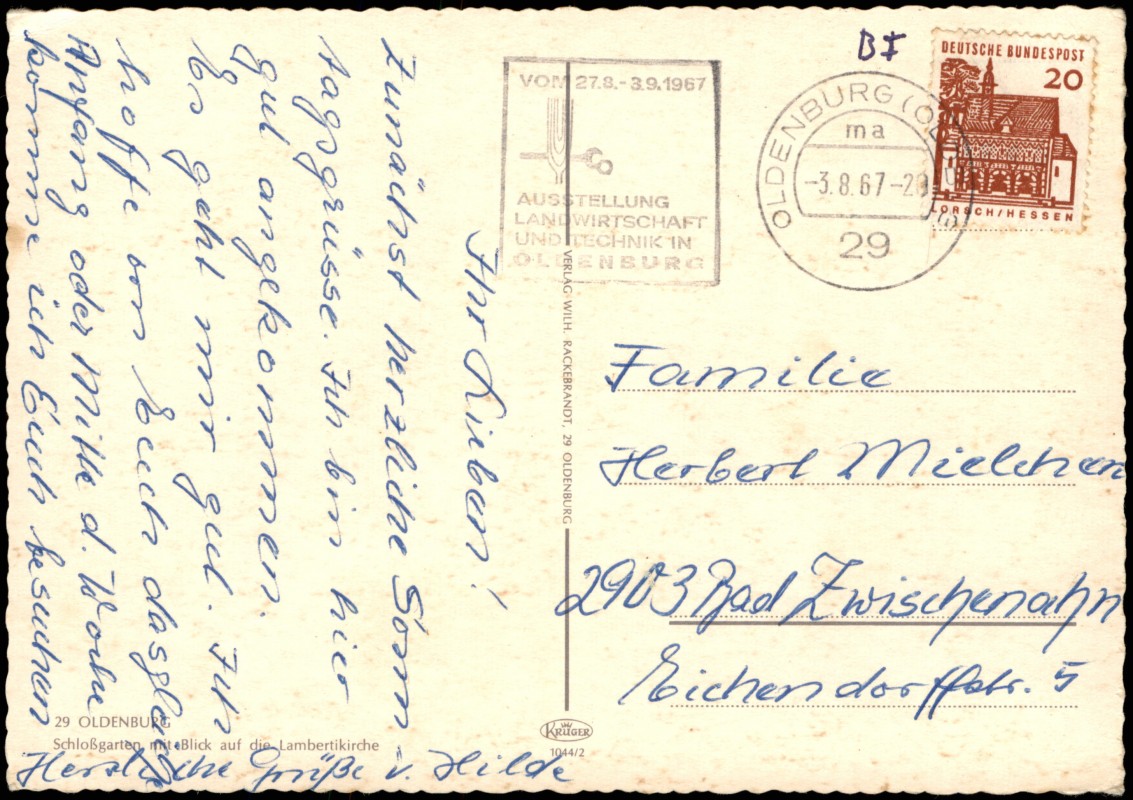 Ihr Lieben!
Zunächst herzliche Sonn-
tagsgrüsse. Ich bin hier
gut angekommen.
Es geht mir gut. Ich
hoffe von Euch dasgleiche
Anfang oder Mitte d. Woche
komme ich Euch besuchen
Herzliche Grüße v. Hilde
29 OLDENBURG
Schloßgarten mit Blick auf die Lambertikirche
VERLAG WILH. RACKEBRANDT, 29 OLDENBURG
KRÜGER
1044/2
VOM 27.8.-3.9.1967
AUSSTELLUNG
LANDWIRTSCHAFT
UND TECHNIK IN
OLDENBURG
OLDENBURG (OL
ma
-3.8.67-20
29
DEUTSCHE BUNDESPOST
20
LORSCH/HESSEN
Familie
Herbert Mielchen
2903 Bad Zwischenahn
Eichendorffstr. 5